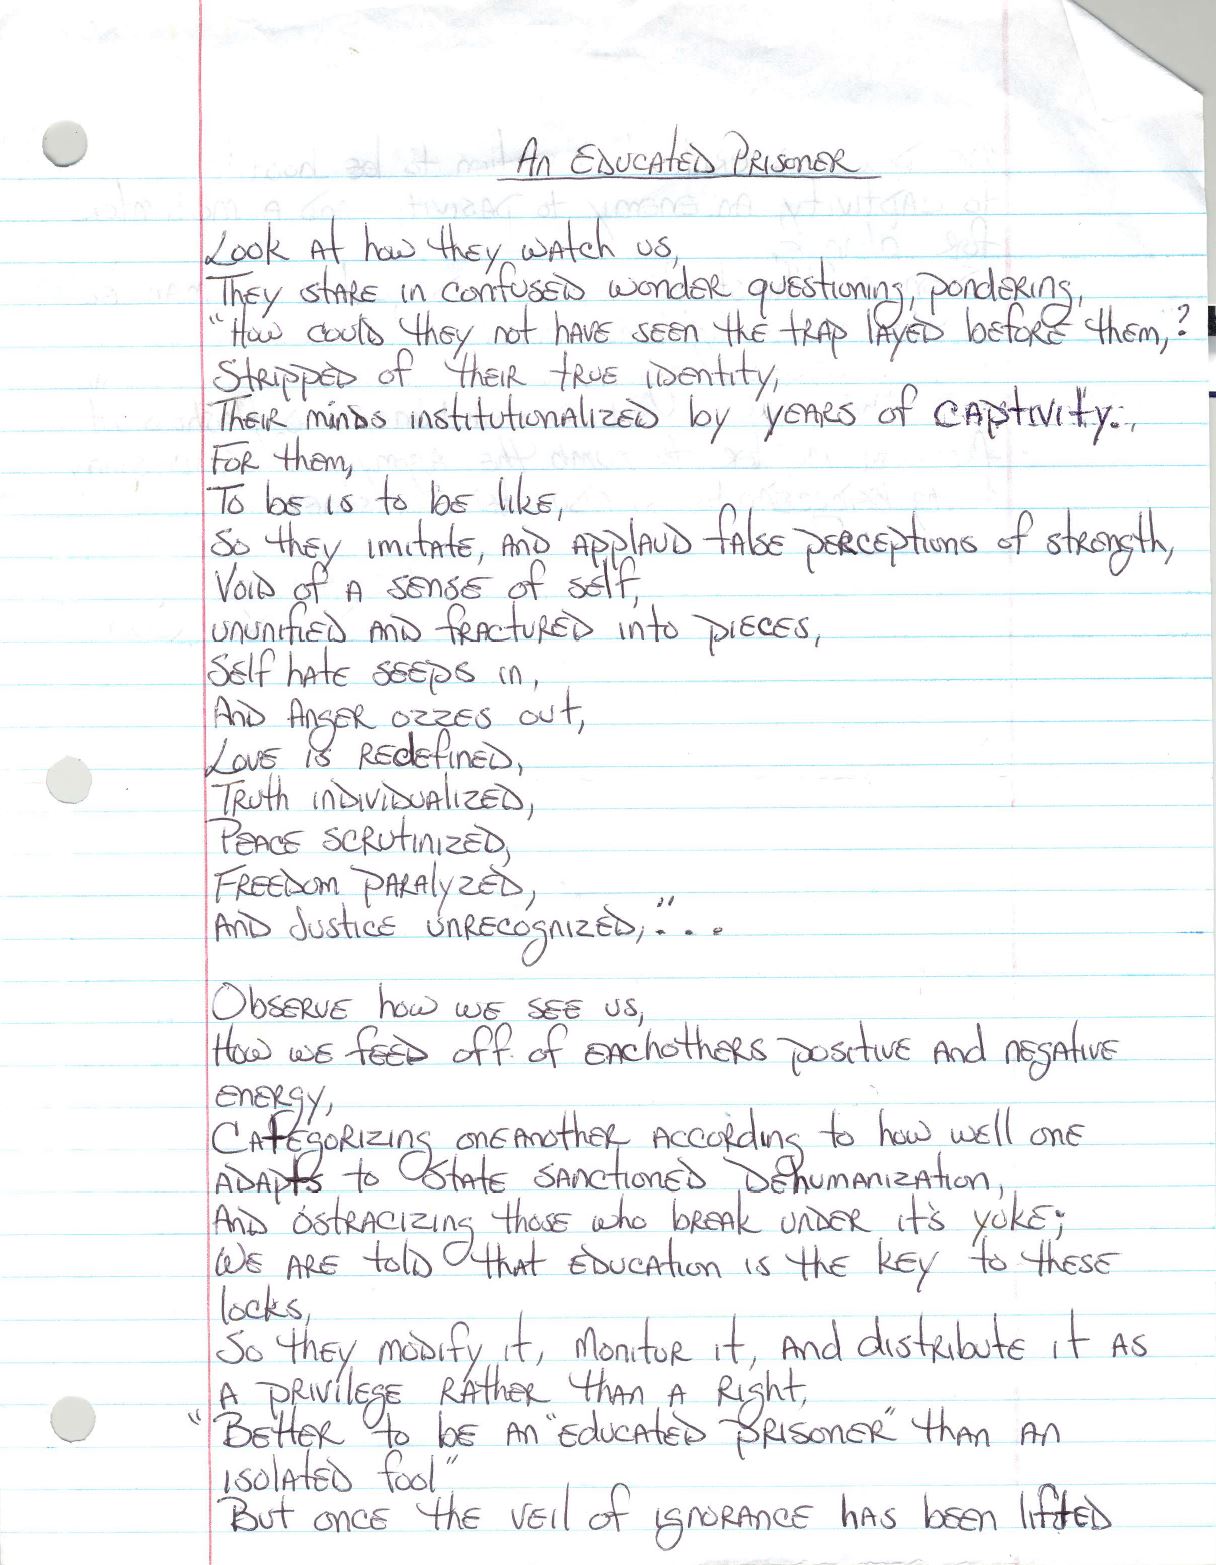 An Educated Prisoner
Look at how they watch us,
They stare in confused wonder questioning, pondering,
"How could they not have seen the trap layed before them,?
Stripped of their true identity,
Their minds institutionalized by years of captivity..,
For them,
To be is to be like,
So they imitate, and applaud false perceptions of strength,
Void of a sense of self,
ununified and fractured into pieces,
Self hate seeps in,
And Anger ozzes out,
Love is redefined,
Truth individualized,
Peace scrutinized,
Freedom paralyzed,
And Justice unrecognized,"...
Observe how we see us,
How we feed off of eachothers positive and negative
energy,
Categorizing oneanother according to how well one
adapts to State sanctioned Dehumanization,
And ostracizing those who break under it's yoke;
We are told that education is the key to these
locks,
So they modify it, monitor it, and distribute it as
a privilege rather than a Right,
"Better to be an "educated prisoner" than an
isolated fool"
But once the veil of ignorance has been lifted